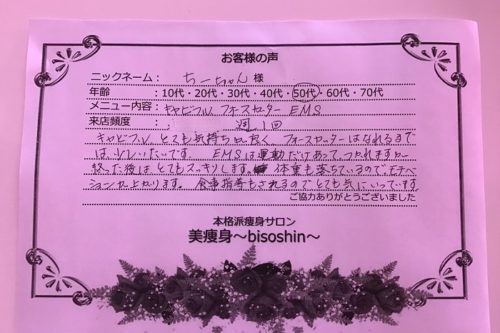 お客様の声
ニックネーム： ちーちゃん 様
年齢 ：10代・20代・30代・40代・50代・60代・70代
メニュー内容： キャビフル フォースカッター EMS
来店頻度 ： 週1回
キャビフル とても気持ち良く フォースカッターはなれるまで
は 少しいたいです EMSは運動だけあってつかれますが
終った後はとてもスッキリします。 体重も落ちているので、モチベ
ーションが上がります。食事指導もされるのでとても気にいっています。
ご協力ありがとうございました
本格派痩身サロン
美痩身～bisoshin～